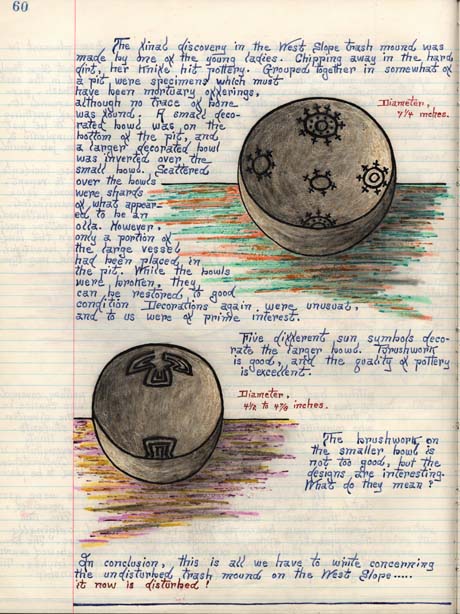 60
The final discovery in the West Slope trash mound was
made by one of the young ladies. Chipping away in the hard
dirt, her knife hit pottery. Grouped together in somewhat of
a pit were specimens which must
have been mortuary offerings,
although no trace of bone
was found. A small deco-
rated bowl was on the
bottom of the pit, and
a larger decorated bowl
was inverted over the
small bowl. Scattered
over the bowls
were shards
of what appear-
ed to be an
olla. However,
only a portion of
the large vessel
had been placed in
the pit. While the bowls
were broken, they
can be restored to good
condition. Decorations again, were unusual,
and to us were of prime interest.
Diameter,
7 1/4 inches.
Five different sun symbols deco-
rate the larger bowl. Brushwork
is good, and the quality of pottery
is excellent.
Diameter,
4 1/2 to 4 7/8 inches.
The brushwork on
the smaller bowl is
not too good, but the
designs are interesting.
What do they mean?
In conclusion, this is all we have to write concerning
the undisturbed trash mound on the West Slope.....
it now is disturbed!